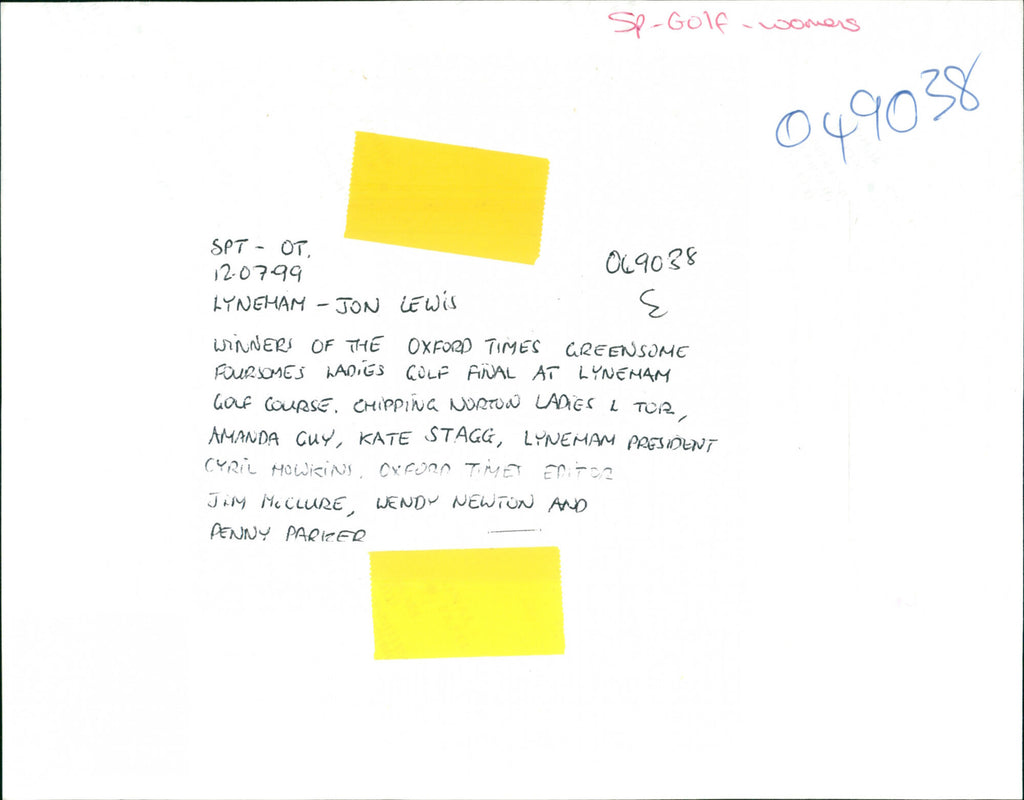 Sp-Golf-womens
049038
SPT - OT.
12.07.99
049038
LYNEHAM - JON LEWIS
Σ
WINNERS OF THE OXFORD TIMES GREENSOME
FOURSOMES LADIES GOLF FINAL AT LYNEHAM
GOLF COURSE. CHIPPING NORTON LADIES L TOR,
AMANDA GUY, KATE STAGG, LYNEHAM PRESIDENT
CYRIL HOWKINS, OXFORD TIMES EDITOR
JIM McCLURE, WENDY NEWTON AND
PENNY PARKER